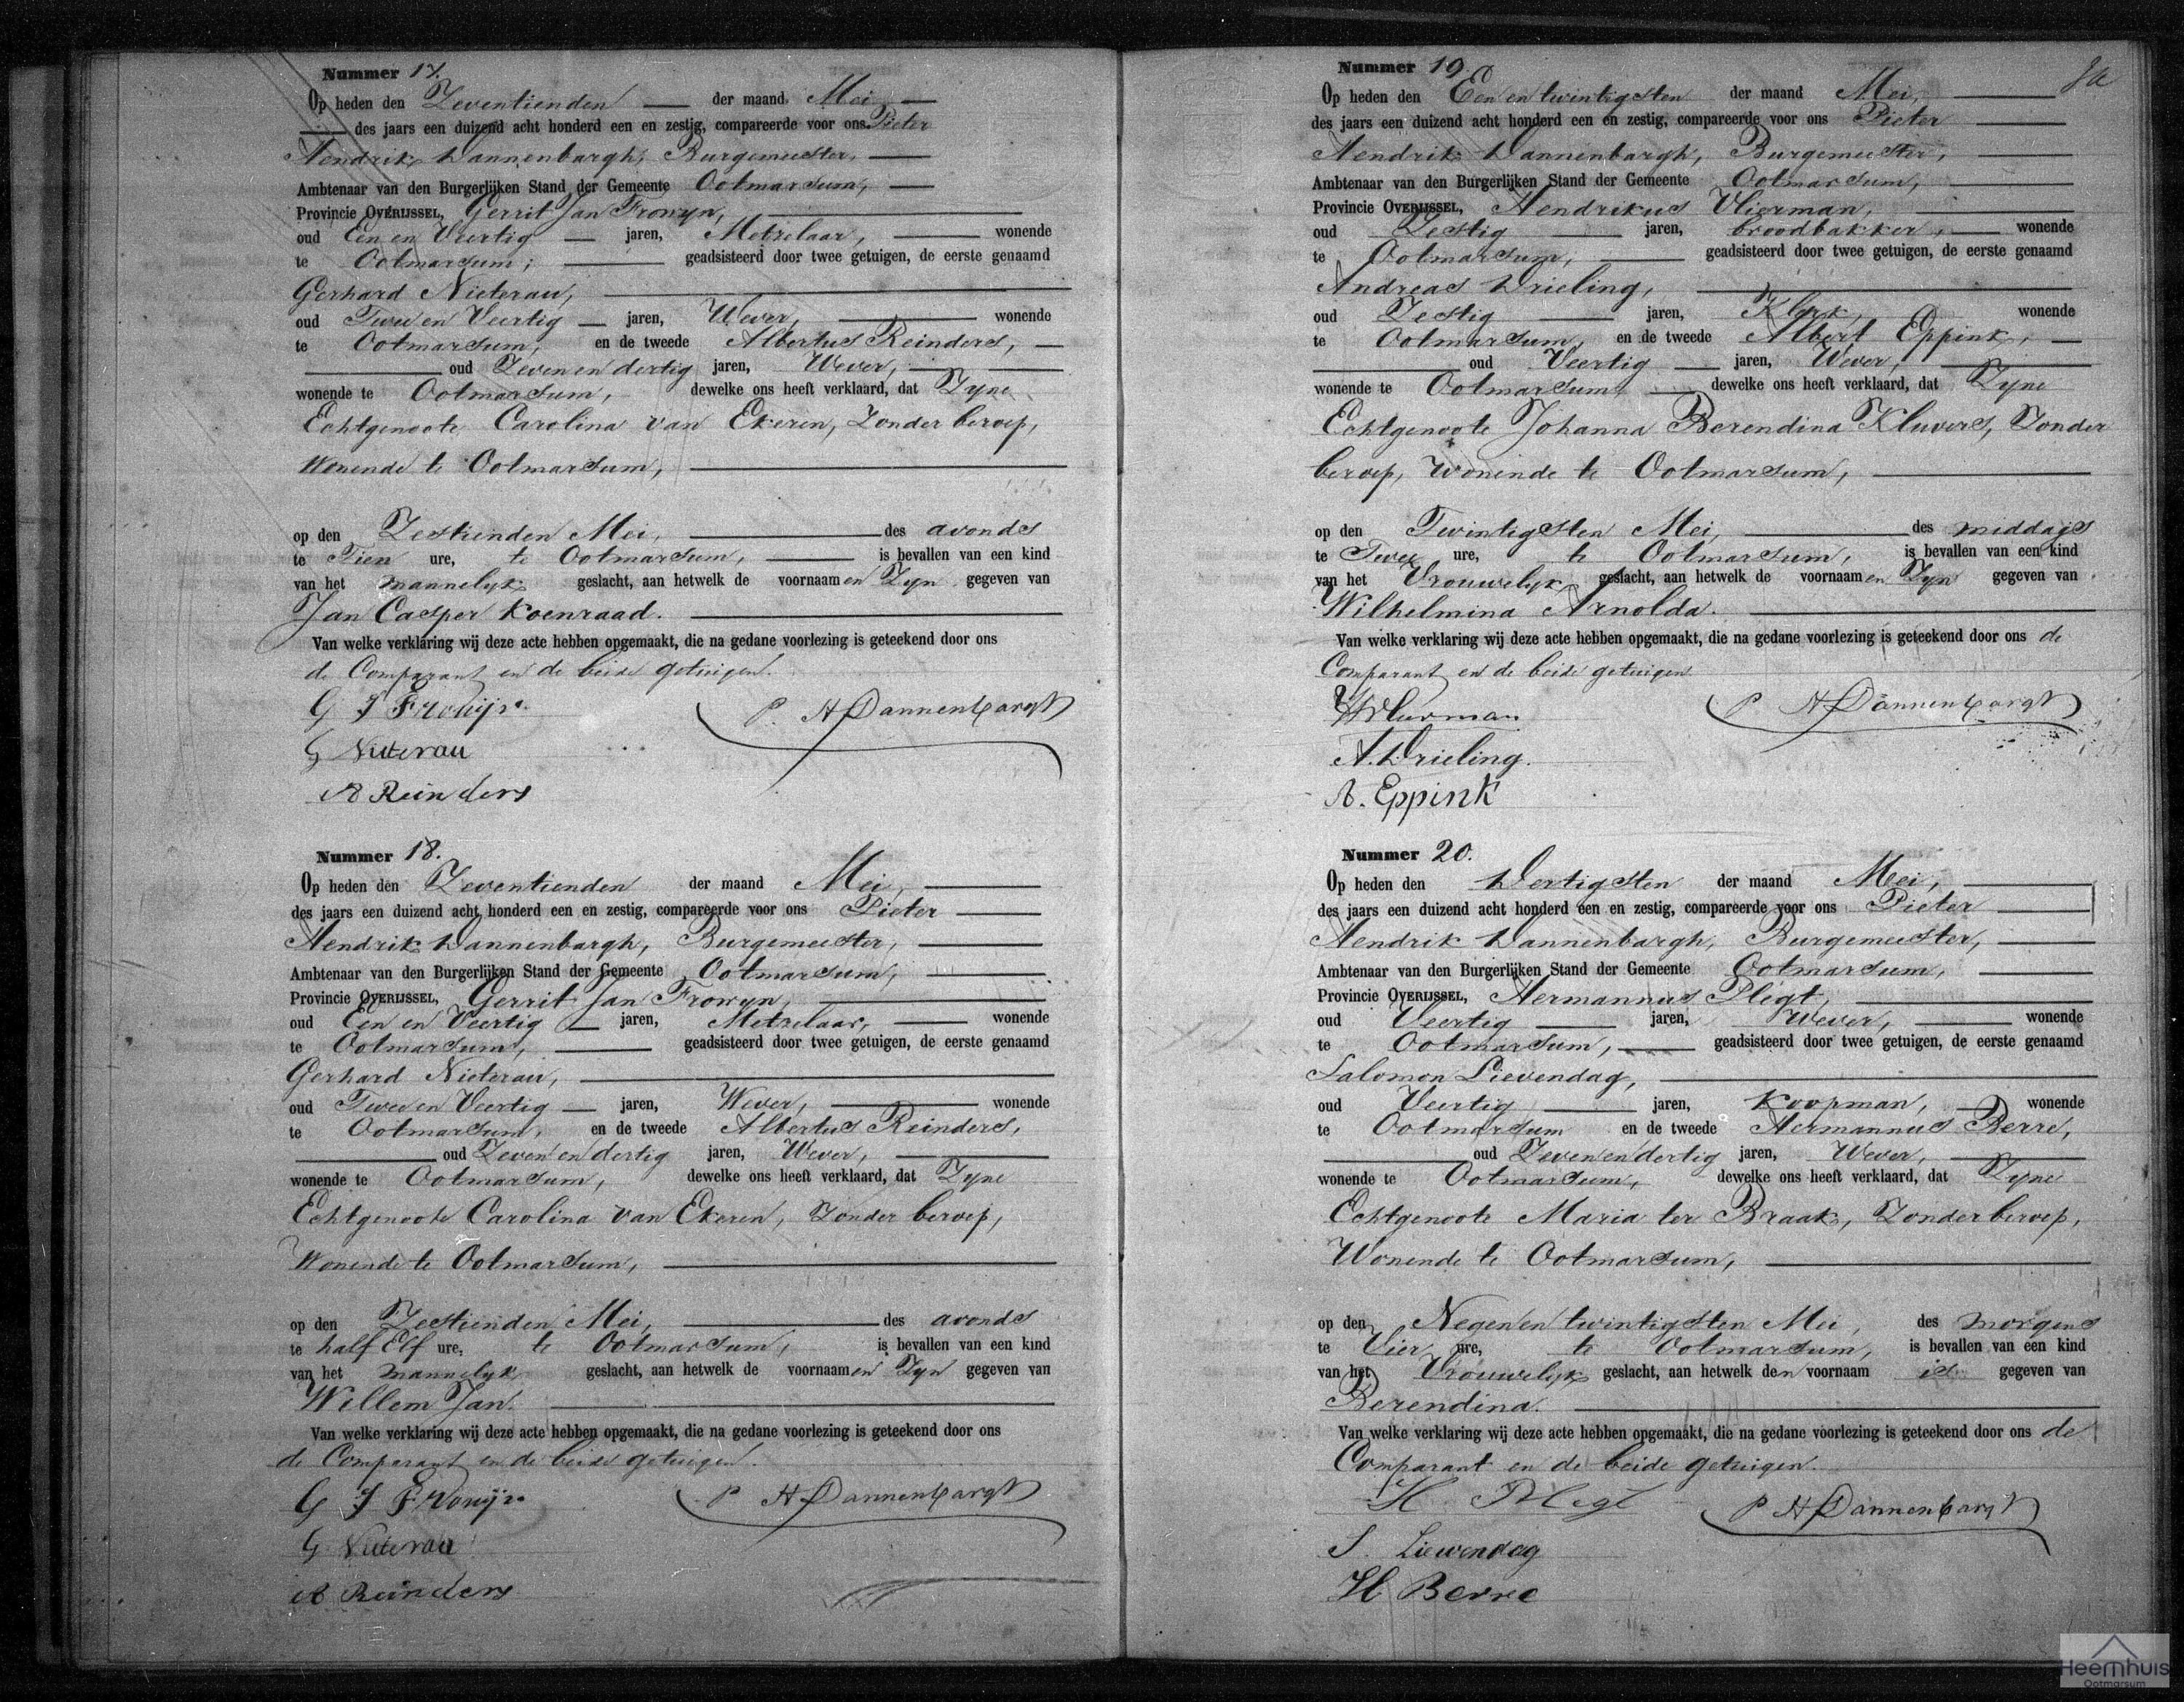 Nummer 17.
Op heden den Zeventienden der maand Mei
des jaars een duizend acht honderd een en zestig, compareerde voor ons Pieter
Hendrik Dannenbargh, Burgemeester,
Ambtenaar van den Burgerlijken Stand der Gemeente Ootmarsum,
Provincie OVERIJSSEL, Gerrit Jan Frowyn,
oud Een en Veertig jaren, Metzelaar, wonende
te Ootmarsum, geadsisteerd door twee getuigen, de eerste genaamd
Gerhard Nieterau,
oud Twee en Veertig jaren, Wever, wonende
te Ootmarsum, en de tweede Albertus Reinders,
oud Zeven en dertig jaren, Wever,
wonende te Ootmarsum, dewelke ons heeft verklaard, dat Zyne
Echtgenoote Carolina van Ekeren, Zonder beroep,
Wonende te Ootmarsum,
op den Zestienden Mei, des avonds
te Tien ure, te Ootmarsum, is bevallen van een kind
van het mannelyk geslacht, aan hetwelk de voornaamen Zyn gegeven van
Jan Casper Koenraad.
Van welke verklaring wij deze acte hebben opgemaakt, die na gedane voorlezing is geteekend door ons
de Comparant en de beide getuigen.
G J Frowijn
P. H Dannenbargh
G Nieterau
A Reinders
Nummer 18.
Op heden den Zeventienden der maand Mei,
des jaars een duizend acht honderd een en zestig, compareerde voor ons Pieter
Hendrik Dannenbargh, Burgemeester,
Ambtenaar van den Burgerlijken Stand der Gemeente Ootmarsum,
Provincie OVERIJSSEL, Gerrit Jan Frowyn,
oud Een en Veertig jaren, Metzelaar, wonende
te Ootmarsum, geadsisteerd door twee getuigen, de eerste genaamd
Gerhard Nieterau,
oud Twee en Veertig jaren, Wever, wonende
te Ootmarsum, en de tweede Albertus Reinders,
oud Zeven en dertig jaren, Wever,
wonende te Ootmarsum, dewelke ons heeft verklaard, dat Zyne
Echtgenoote Carolina van Ekeren, Zonder beroep,
Wonende te Ootmarsum,
op den Zestienden Mei, des avonds
te half Elf ure, te Ootmarsum, is bevallen van een kind
van het mannelyk geslacht, aan hetwelk de voornaamen Zyn gegeven van
Willem Jan.
Van welke verklaring wij deze acte hebben opgemaakt, die na gedane voorlezing is geteekend door ons
de Comparant en de beide getuigen.
G J Frowijn
P H Dannenbargh
G. Nieterau
A Reinders
Nummer 19.
Op heden den Een en twintigsten der maand Mei,
des jaars een duizend acht honderd een en zestig, compareerde voor ons Pieter
Hendrik Dannenbargh, Burgemeester,
Ambtenaar van den Burgerlijken Stand der Gemeente Ootmarsum,
Provincie OVERIJSSEL, Hendrikus Vlierman,
oud Zestig jaren, broodbakker, wonende
te Ootmarsum, geadsisteerd door twee getuigen, de eerste genaamd
Andreas Drieling,
oud Zestig jaren, Klerk, wonende
te Ootmarsum, en de tweede Albert Eppink,
oud Veertig jaren, Wever,
wonende te Ootmarsum, dewelke ons heeft verklaard, dat Zyne
Echtgenoote Johanna Berendina Kluvers, Zonder
beroep, Wonende te Ootmarsum,
op den Twintigsten Mei, des middags
te Twee ure, te Ootmarsum, is bevallen van een kind
van het Vrouwelyk geslacht, aan hetwelk de voornaamen Zyn gegeven van
Wilhelmina Arnolda.
Van welke verklaring wij deze acte hebben opgemaakt, die na gedane voorlezing is geteekend door ons de
Comparant en de beide getuigen
H Vlierman
P H Dannenbargh
A. Drieling.
A. Eppink
Nummer 20.
Op heden den Dertigsten der maand Mei,
des jaars een duizend acht honderd een en zestig, compareerde voor ons Pieter
Hendrik Dannenbargh, Burgemeester,
Ambtenaar van den Burgerlijken Stand der Gemeente Ootmarsum,
Provincie OVERIJSSEL, Hermannus Plegt,
oud Veertig jaren, Wever, wonende
te Ootmarsum, geadsisteerd door twee getuigen, de eerste genaamd
Salomon Lievendag,
oud Veertig jaren, Koopman, wonende
te Ootmarsum en de tweede Hermannus Berre,
oud Zeven en dertig jaren, Wever,
wonende te Ootmarsum, dewelke ons heeft verklaard, dat Zyne
Echtgenoote Maria ter Braak, Zonder beroep,
Wonende te Ootmarsum,
op den Negen en twintigsten Mei, des morgens
te Vier ure, te Ootmarsum, is bevallen van een kind
van het Vrouwelyk geslacht, aan hetwelk den voornaam is gegeven van
Berendina.
Van welke verklaring wij deze acte hebben opgemaakt, die na gedane voorlezing is geteekend door ons de
Comparant en de beide getuigen.
H. Plegt
P H Dannenbargh
S. Liewendag
H Berre
Heemhuis
Ootmarsum